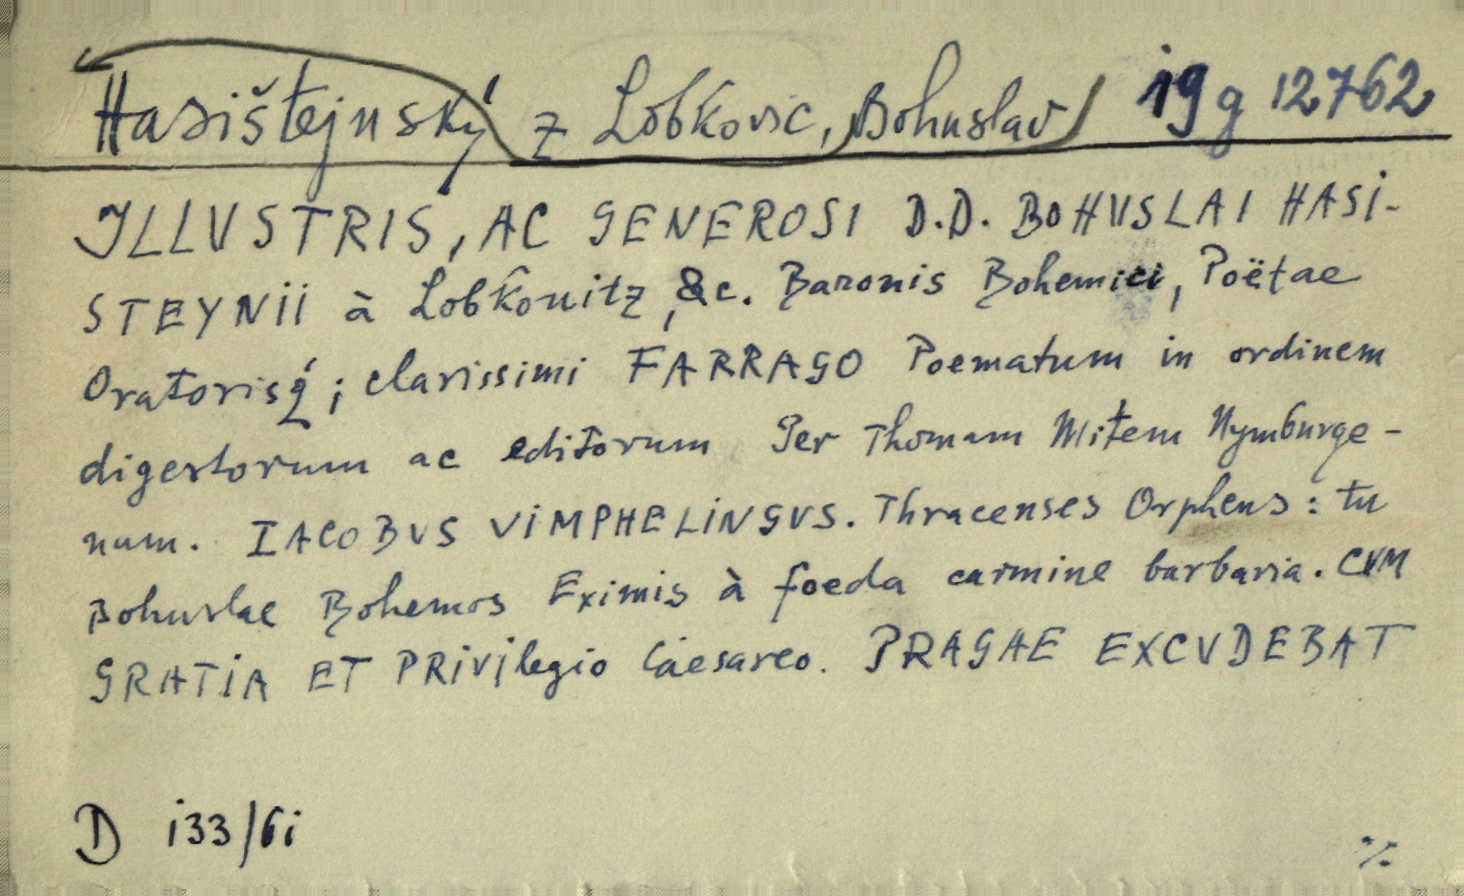 Hasištejnský z Lobkovic, Bohuslav 19 g 12762
ILLVSTRIS, AC GENEROSI D.D. BOHVSLAI HASI-
STEYNII à Lobkouitz, &c. Baronis Bohemici, Poëtae
Oratorisq́; clarissimi FARRAGO Poematum in ordinem
digestorum ac editorum Per Thomam Mitem Nymburge-
num. IACOBVS VIMPHELINGVS. Thracenses Orpheus: tu
Bohuslae Bohemos Eximis à foeda carmine barbaria. CVM
GRATIA ET PRIVIlegio Caesareo. PRAGAE EXCVDEBAT
D 133/61
%